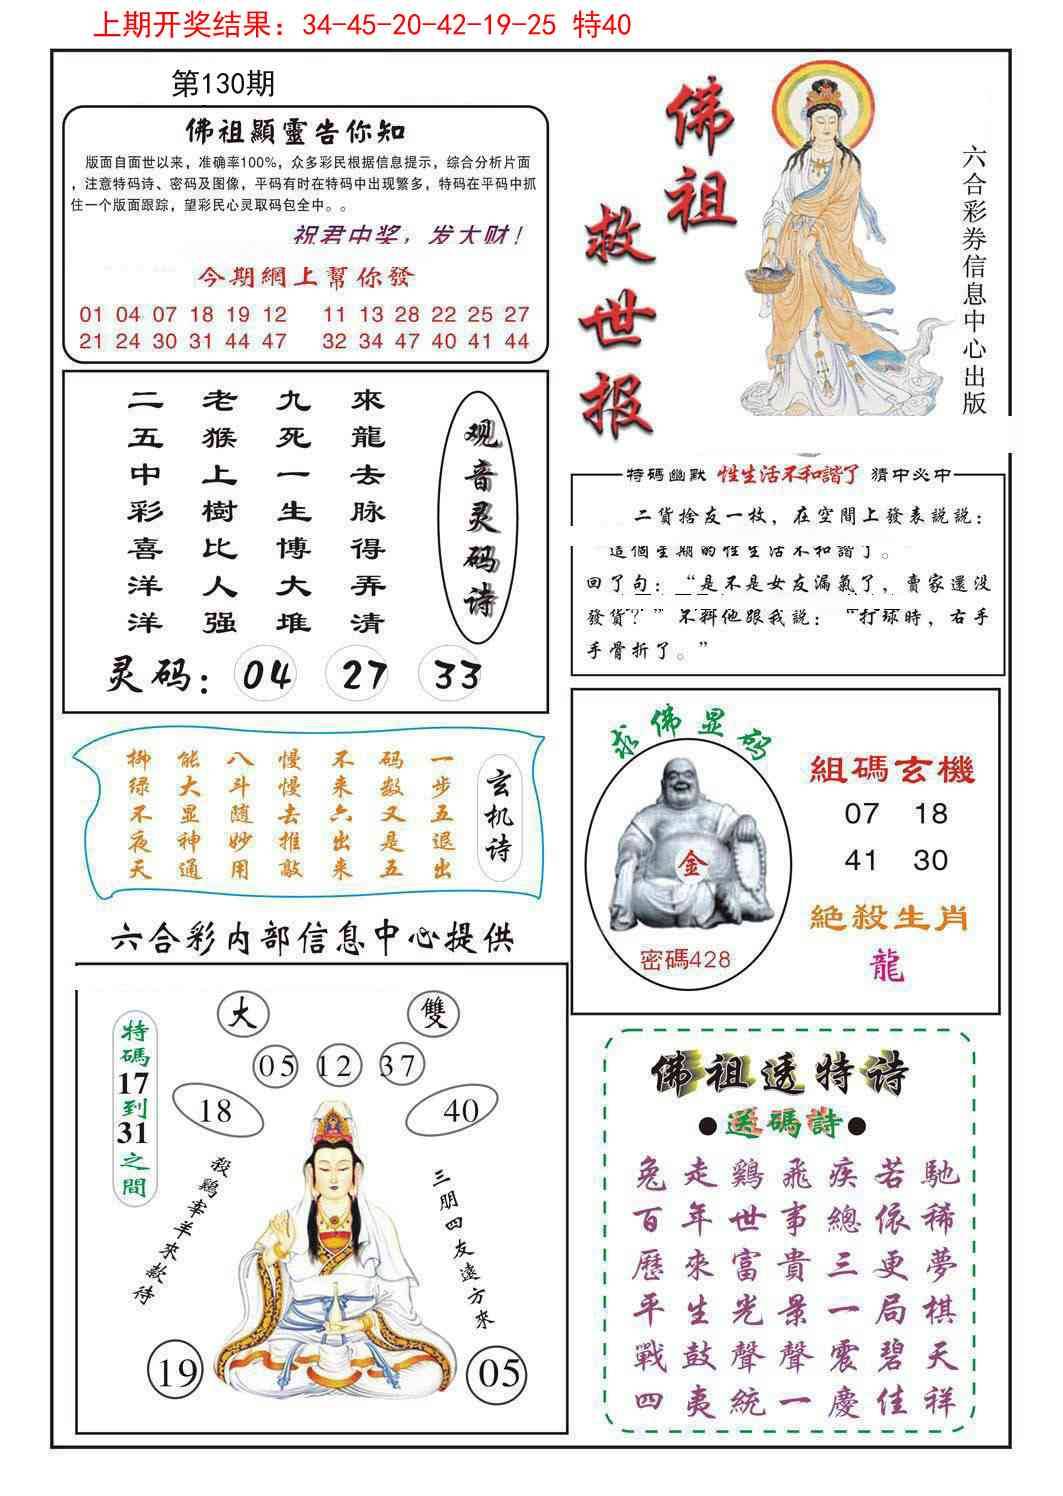 上期开奖结果：34-45-20-42-19-25 特40
第130期
佛祖顯靈告你知
版面自面世以来，准确率100%，众多彩民根据信息提示，综合分析片面
，注意特码诗、密码及图像，平码有时在特码中出现繁多，特码在平码中抓
住一个版面跟踪，望彩民心灵取码包全中。。
祝君中奖，发大财！
今期網上幫你發
01 04 07 18 19 12 11 13 28 22 25 27
21 24 30 31 44 47 32 34 47 40 41 44
佛祖
救世报
六合彩券信息中心出版
來龍去脉得弄清
九死一生博大堆
老猴上樹比人强
二五中彩喜洋洋
观音灵码诗
灵码：04 27 33
特碼幽默 性生活不和諧了 猜中必中
二貨捨友一枚，在空間上發表説説：
這個星期的性生活不和諧了。
回了句：“是不是女友漏氣了，賣家還没
發貨？” 不料他跟我説：“打球時，右手
手骨折了。”
玄机诗
一步五退出
码数又是五
不来六出来
慢慢去推敲
八斗随妙用
能大显神通
柳绿不夜天
六合彩内部信息中心提供
求佛显码
金
密碼428
組碼玄機
07 18
41 30
絶殺生肖
龍
特碼17到31之間
大 雙
05 12 37
18 40
殺鷄宰羊來款待
三朋四友遠方來
19 05
佛祖透特诗
●送碼詩●
兔走鷄飛疾若馳
百年世事總依稀
歷來富貴三更夢
平生光景一局棋
戰鼓聲聲震碧天
四夷統一慶佳祥